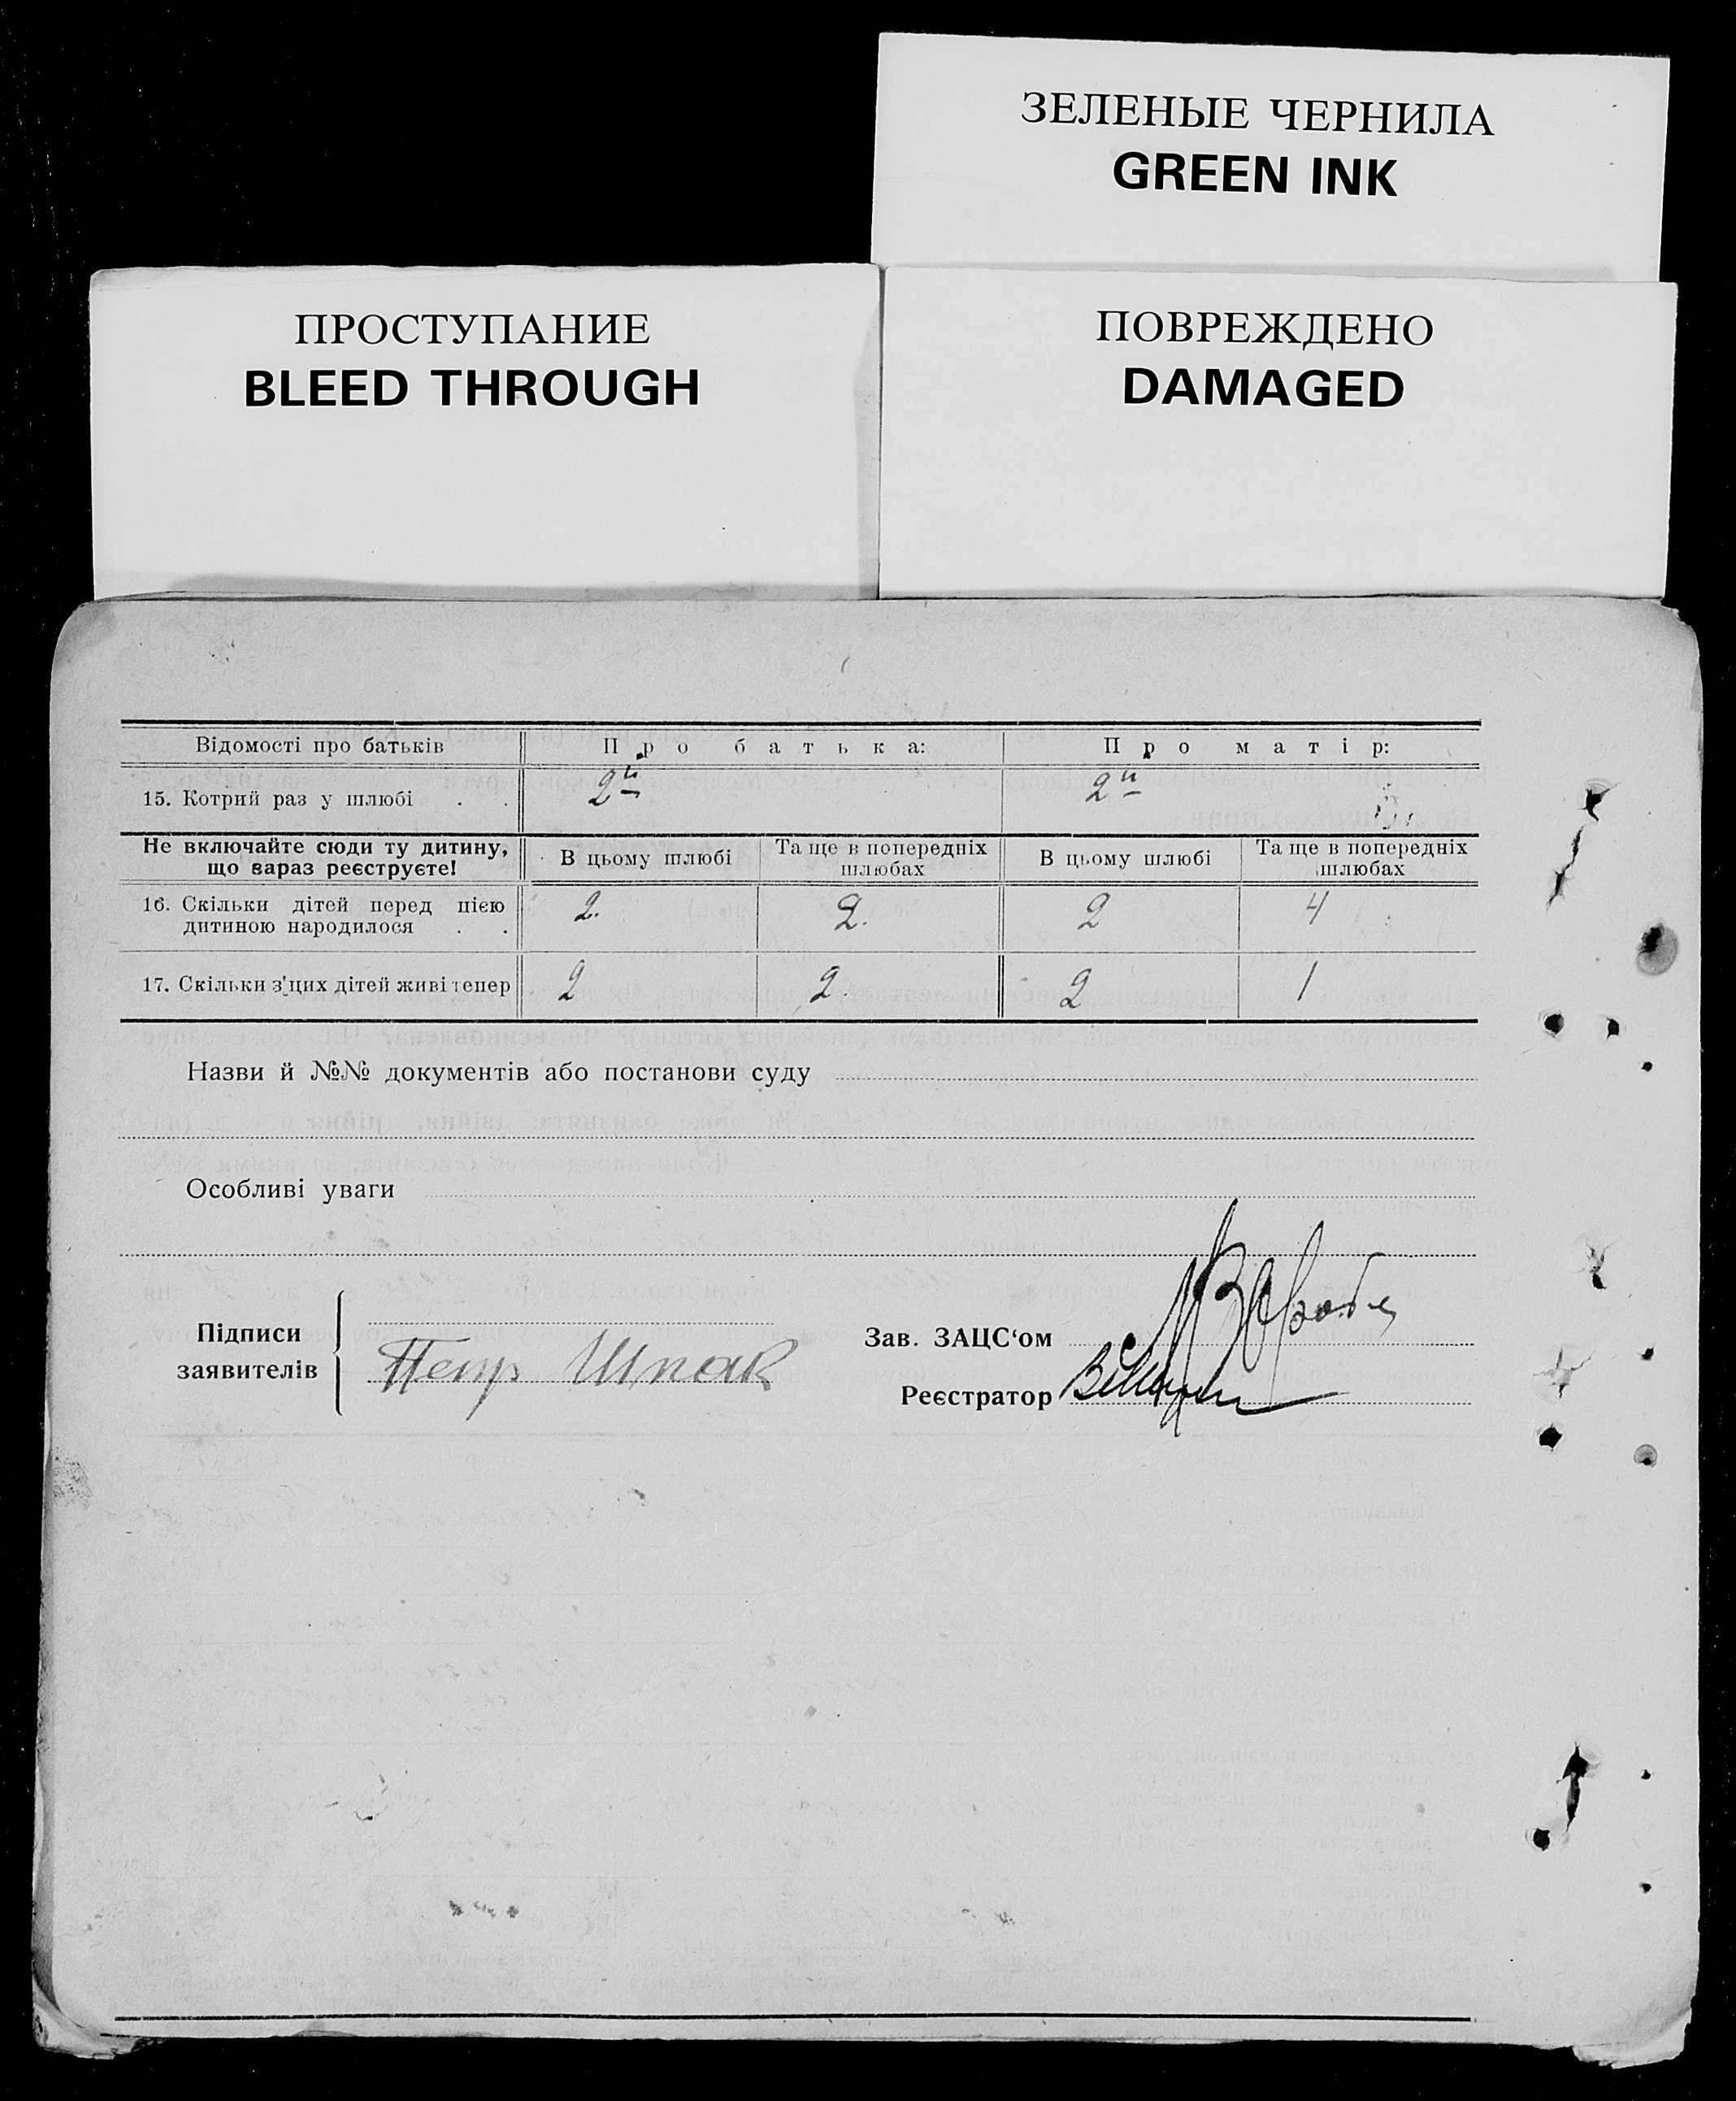 ЗЕЛЕНЫЕ ЧЕРНИЛА
GREEN INK
ПРОСТУПАНИЕ
BLEED THROUGH
ПОВРЕЖДЕНО
DAMAGED
Відомості про батьків Про батька: Про матір:
15. Котрий раз у шлюбі . . 2й 2й
Не включайте сюди ту дитину, що вараз реєструєте! В цьому шлюбі Та ще в попередніх шлюбах В цьому шлюбі Та ще в попередніх шлюбах
16. Скільки дітей перед цією дитиною народилося . . 2. 2. 2 4
17. Скільки з'цих дітей живі тепер 2 2. 2 1
Назви й №№ документів або постанови суду
Особливі уваги
Підписи заявителів Петр Шпак
Зав. ЗАЦС‘ом
Реєстратор